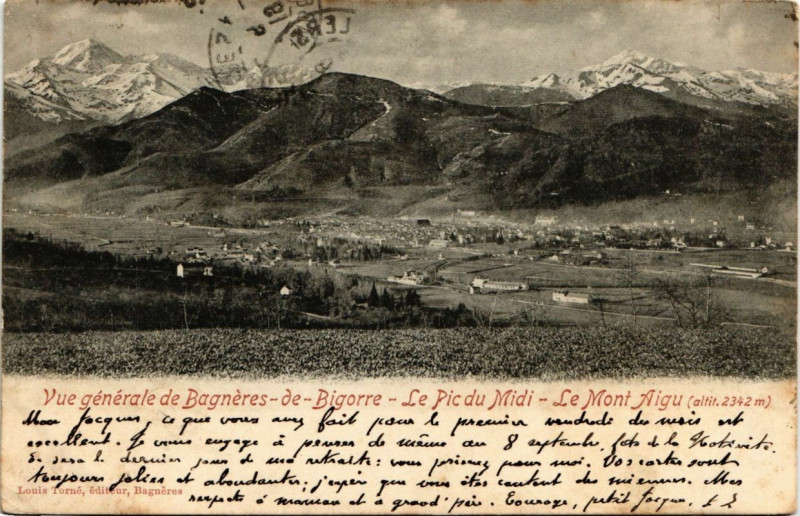 Vue générale de Bagnères-de-Bigorre - Le Pic du Midi - Le Mont Aigu (altit. 2342 m)
Mon Jacques, ce que vous avez fait pour le premier vendredi du mois est
excellent. Je vous engage à penser de même au 8 septembre, fête de la Nativité.
Ce sera le dernier jour de ma retraite: vous prierez pour moi. Vos cartes sont
toujours jolies et abondantes; j'espère que vous êtes content des miennes. Mes
Louis Torné, éditeur, Bagnères
respects à maman et à grand'père. Courage, petit Jacques.